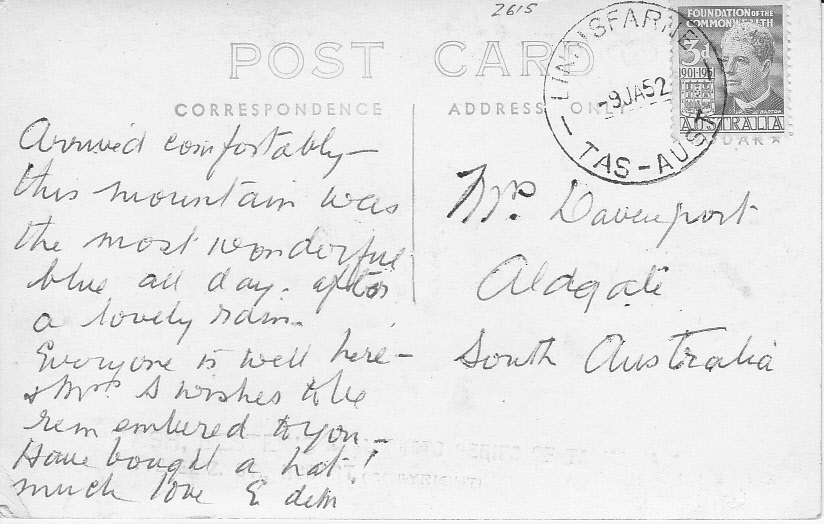 2615
POST CARD
CORRESPONDENCE
ADDRESS ON
LINDISFARNE
9JA52
TAS-AUS
FOUNDATION OF THE
COMMONWEALTH
3d
1901-1951
BARTON
AUSTRALIA
KODAK
Arrived comfortably—
this mountain was
the most wonderful
blue all day. after
a lovely rain.
Everyone is well here—
& Mrs S wishes to be
remembered to you—
Have bought a hat!
much love E
Mrs. Davenport
Aldgate
South Australia